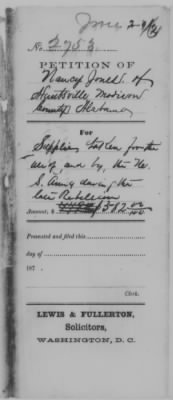 No. 2753
PETITION OF
Nancy Jones. of
Huntsville Madison
County Alabama
For
Supplies taken for the
use of, and by, the U.
S. Army during the
late Rebellion
Amount, $ 382 00/100
Presented and filed this
day of
187 .
Clerk.
LEWIS & FULLERTON,
Solicitors,
WASHINGTON, D. C.